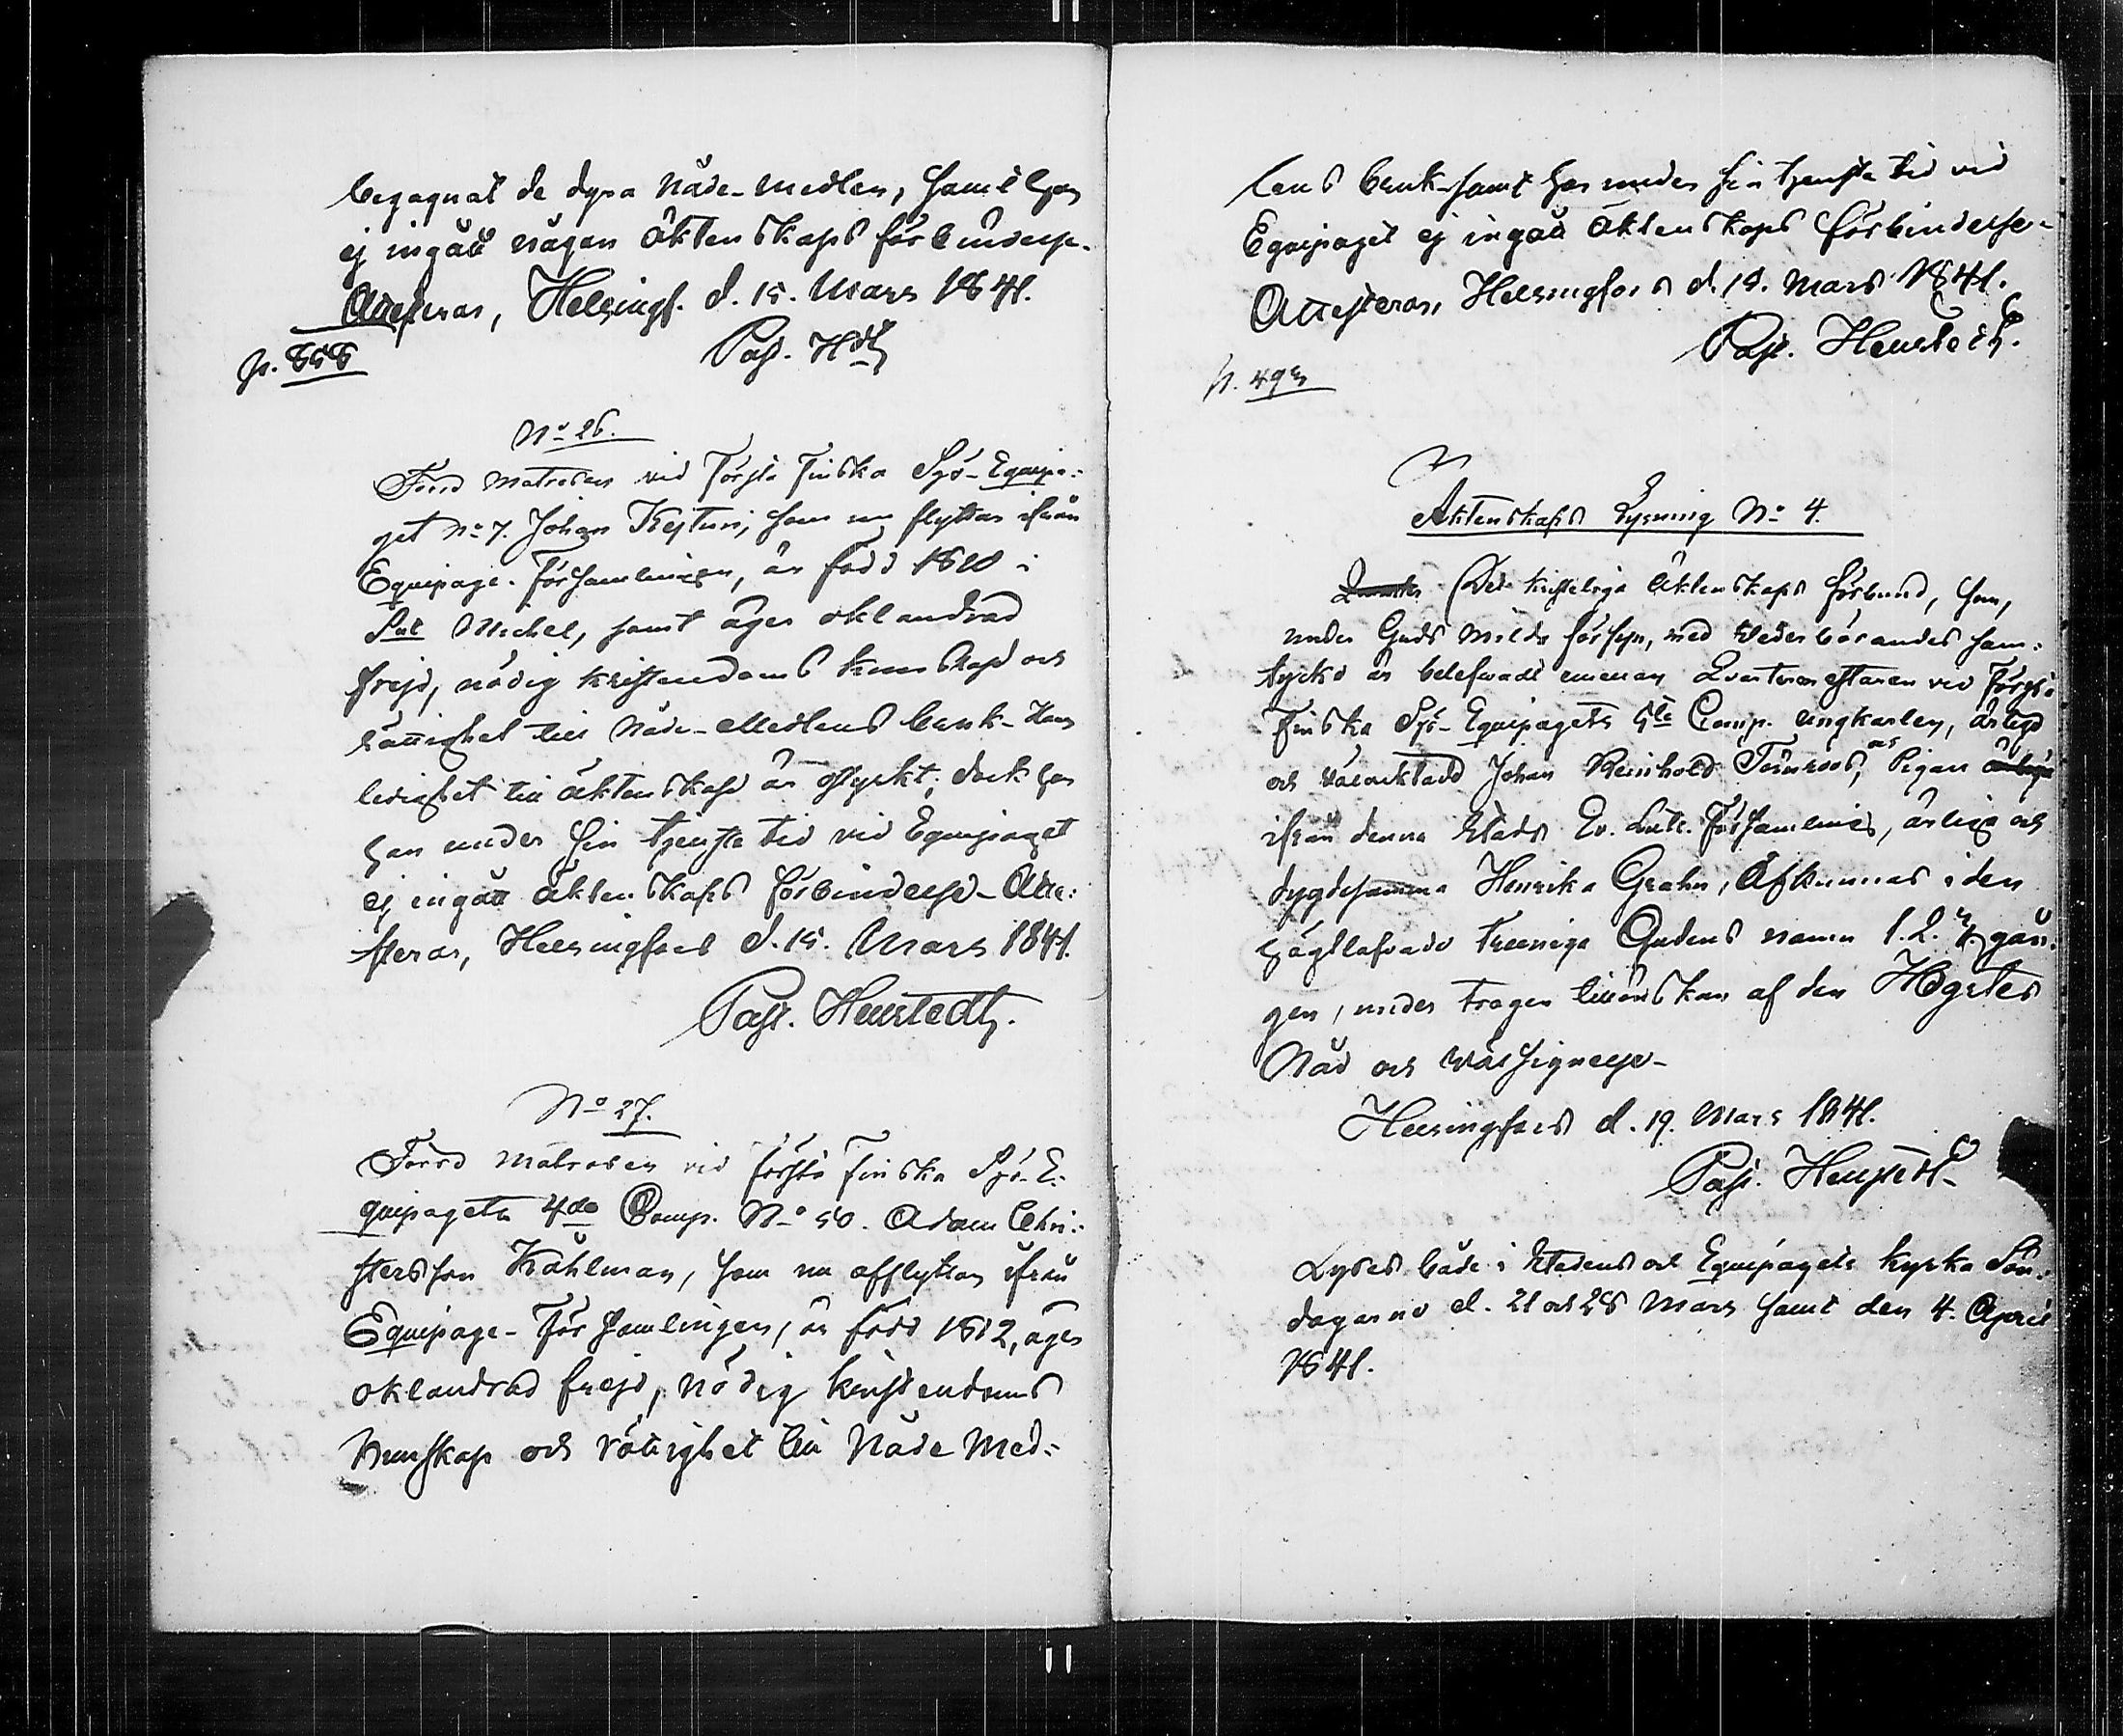 begagnat de dyra Nåde-medlen, samt har
ej ingått någon äktenskaps förbindelse.
Attesteras, Helsingf. d. 15. Mars 1841.
Past. Hdt
p. 858
No 26.
Förrd Matrosen vid Första Finska Sjö-Equipa:
get No 7. Johan Kejturi, som nu flyttar ifrån
Equipage-Församlingen, är född 1820 i
S:ut Michel, samt äger oklandrad
frejd, nödig kristendoms kunskap och
rättighet till Nåde-Medlens bruk- Hans
ledighet till äktenskap är ostyrkt; dock har
han under sin tjenste tid vid Equipaget
ej ingått äktenskaps förbindelse- Atte:
steras, Helsingfors d. 15. Mars 1841.
Past. Heurstedt.
No 27.
Förrd Matrosen vid första Finska Sjö-E:
quipagets 4de Comp. No 50. Adam Chri:
stersson Kåhlman, som nu afflyttar ifrån
Equipage-Församlingen, är född 1812, äger
oklandrad frejd, nödig kristendoms
kunskap och rättighet till Nåde Med:
lens bruk- samt har under sin tjenste tid vid
Equipaget ej ingått äktenskaps förbindelse-
Attesteras, Helsingfors d. 18. Mars 1841.
Past. Heurstedt.
p. 493
Äktenskaps Lysning No 4.
Det kristeliga Äktenskaps förbund, som,
under Guds milda försyn, med vederbörandes sam:
tycke är belefvadt emellan Qvartermästaren vid Första
Finska Sjö-Equipagets 5te Comp. ungkarlen, ärlige
och välaktade Johan Reinhold Törnroos, och Pigan ärliga
ifrån denna Stads Ev. Luth. Församling, ärliga och
dygdesamma Henrika Grahn, Afkunnas i den
högtlofvade treeniga Gudens namn 1. 2. 3. gån:
gen, under trogen tillönskan af den Högstes
Nåd och Välsignelse-
Helsingfors d. 19. Mars 1841.
Past. Heurstedt
Lystes både i Stadens och Equipagets kyrka Sön:
dagarne d. 21 och 28 Mars samt den 4. April
1841.